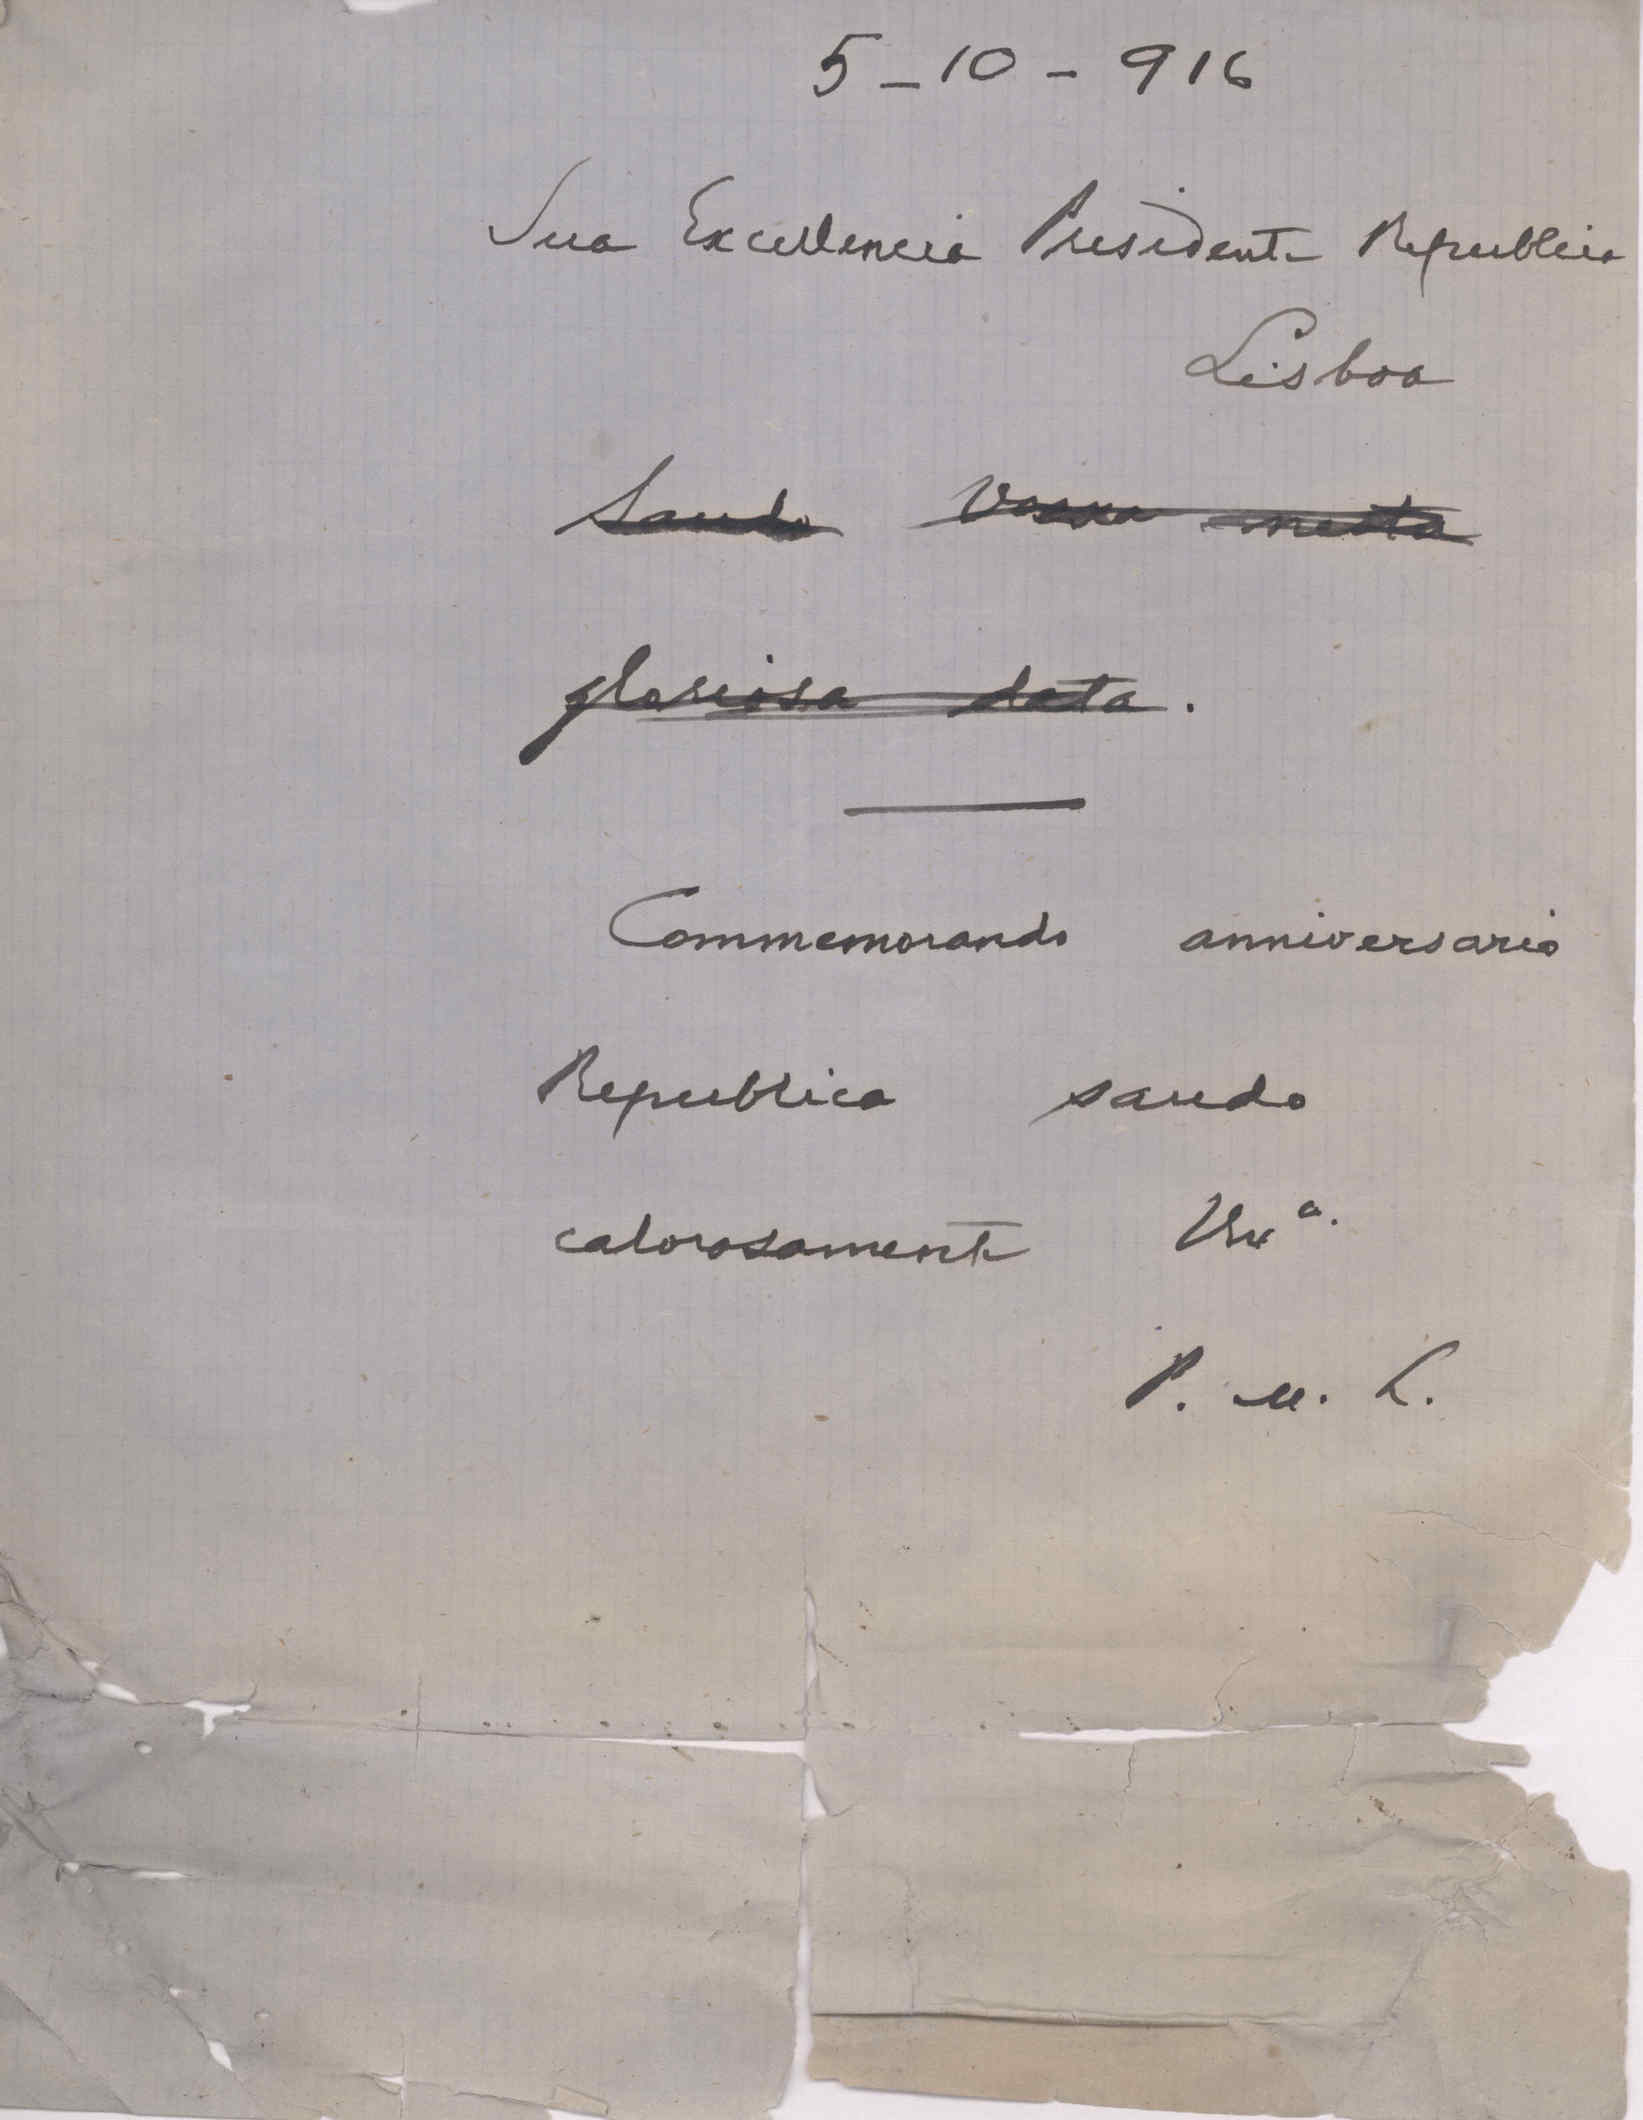 5-10-916
Sua Excellencia Presidente Republica
Lisboa
Saudo Vossa nesta
gloriosa data.
Commemorando anniversario
Republica saudo
calorosamente Vexª.
P. M. L.